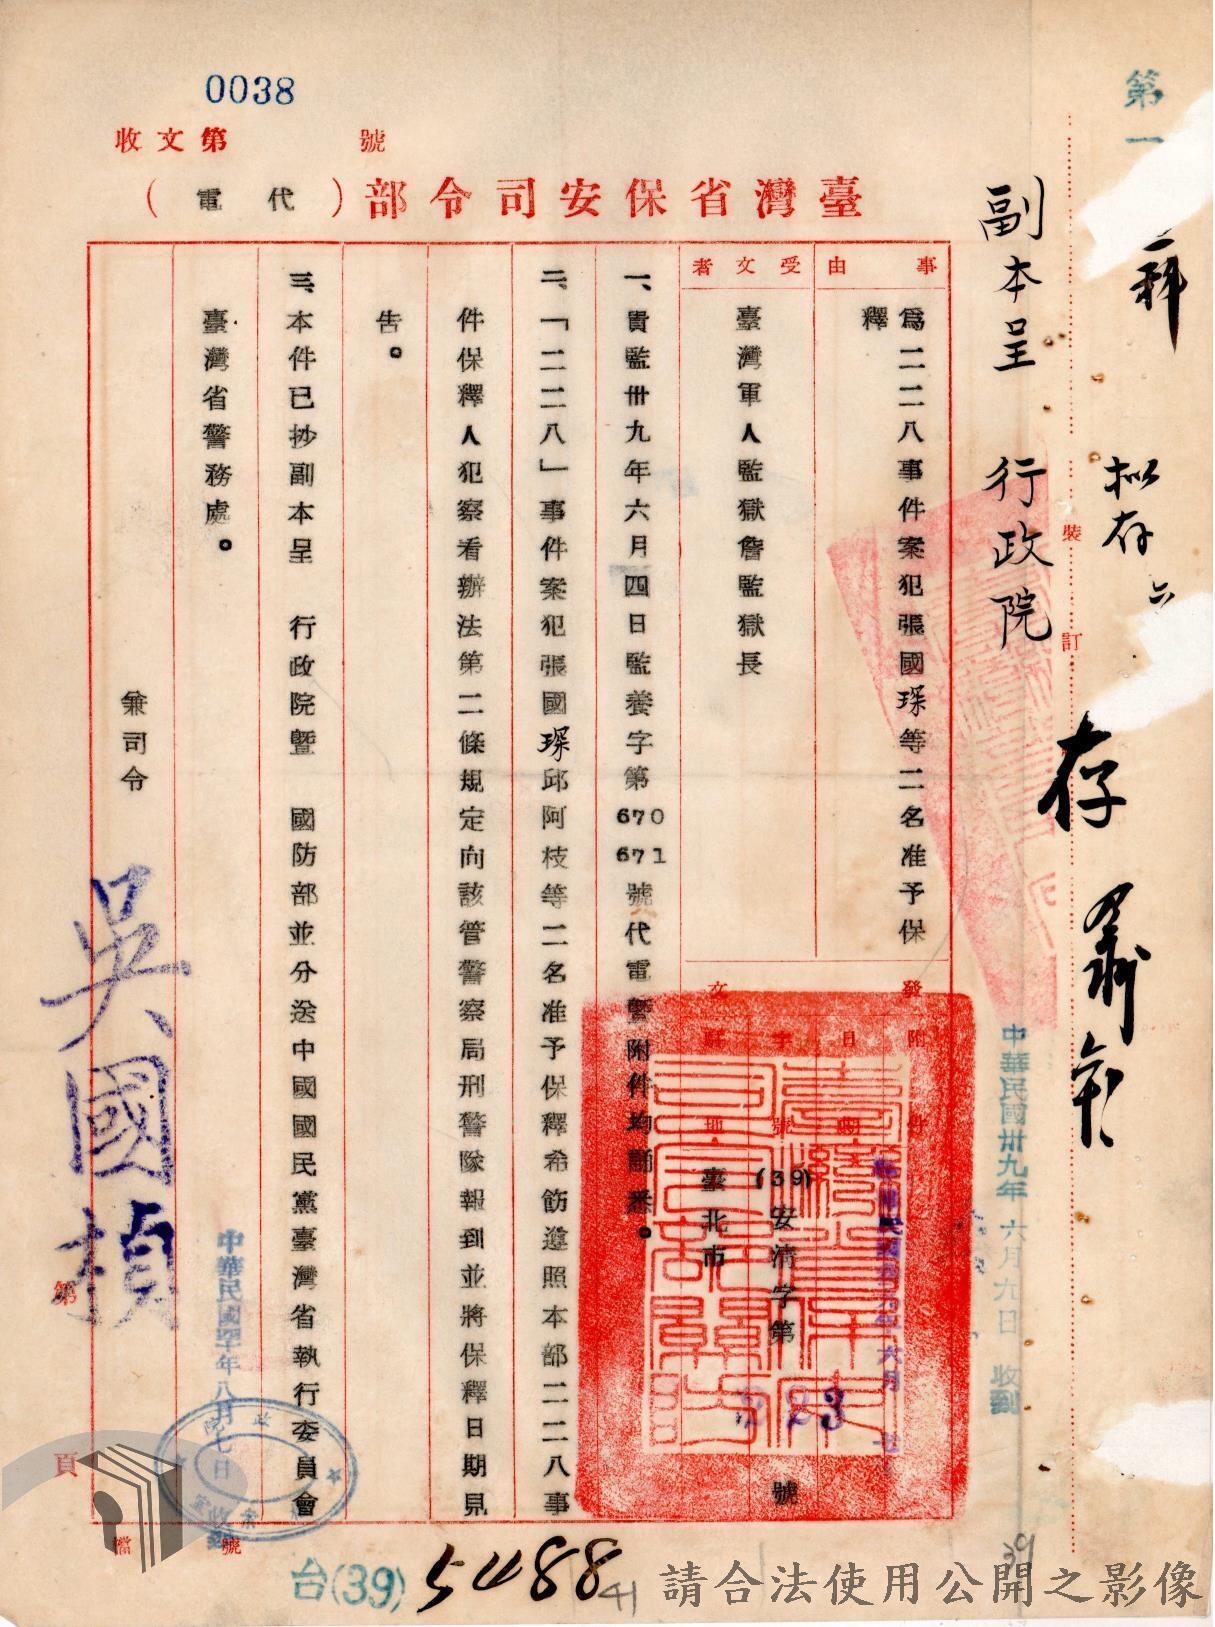 0038
收文第 號
臺灣省保安司令部（代電）
第一
科
拟存
六
存
副本呈 行政院
裝
訂
中華民國卅九年六月九日 收到
事由
為二二八事件案犯張國琛等二名准予保
釋
受文者
臺灣軍人監獄詹監獄長
發文
附件
日期
字號
駐地
中華民國三十九年六月
(39)安清字第
923
號
臺北市
一、貴監卅九年六月四日監養字第670 671號代電暨附件均誦悉。
二、「二二八」事件案犯張國琛邱阿枝等二名准予保釋希飭遵照本部二二八事
件保釋人犯察看辦法第二條規定向該管警察局刑警隊報到並將保釋日期見
告。
三、本件已抄副本呈 行政院暨 國防部並分送中國國民黨臺灣省執行委員會
臺灣省警務處。
兼司令
吳國楨
中華民國四十年八月七日 收到
第
頁
檔 號
台(39)5488
41
39
請合法使用公開之影像